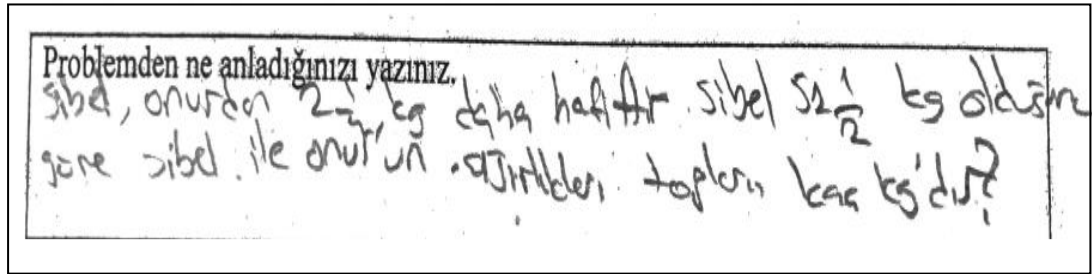 Problemden ne anladığınızı yazınız.
Sibel, onurdan 2 kg daha hafiftir. Sibel 52 1/2 kg olduğuna
göre Sibel ile onur'un ağırlıkları toplamı kaç kg'dır?